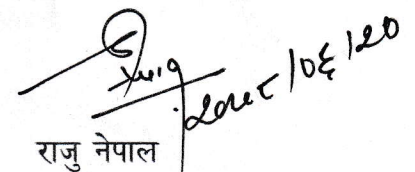 २०७८/०६/२०
राजु नेपाल